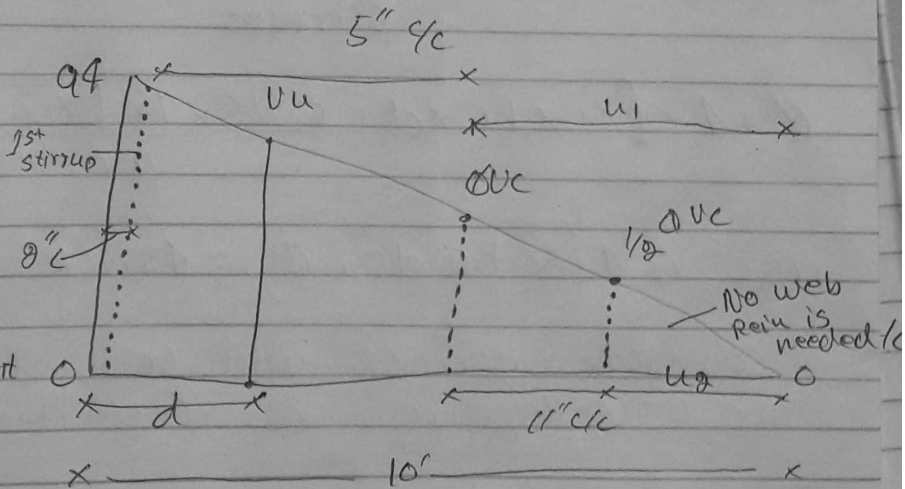 5" c/c
94
Vu
u1
1st
stirrup
ΦVc
1/2 ΦVc
2"
No web
Rein is
needed
0
u2
0
d
11" c/c
10'